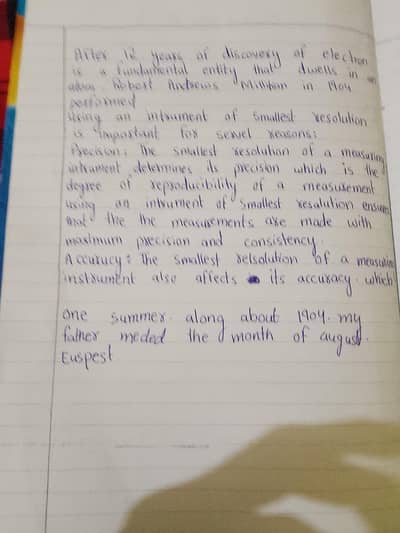 After 12 years of discovery of electron
is a fundamental entity that dwells in an
Robert Andrews Millikan in 1904
performed
Using an intrument of smallest resolution
is important for sevel reasons:
Precision: The smallest resolution of a measuring
intrument determines its precision which is the
degree of reproducibility of a measurement
using an intrument of smallest resolution ensures
that the the measurements are made with
maximum precision and consistency.
Accurucy: The smallest relsolution of a measuring
instrument also affects its accuracy. which
one summer. along about 1904. my
father meded the month of august.
Euspest